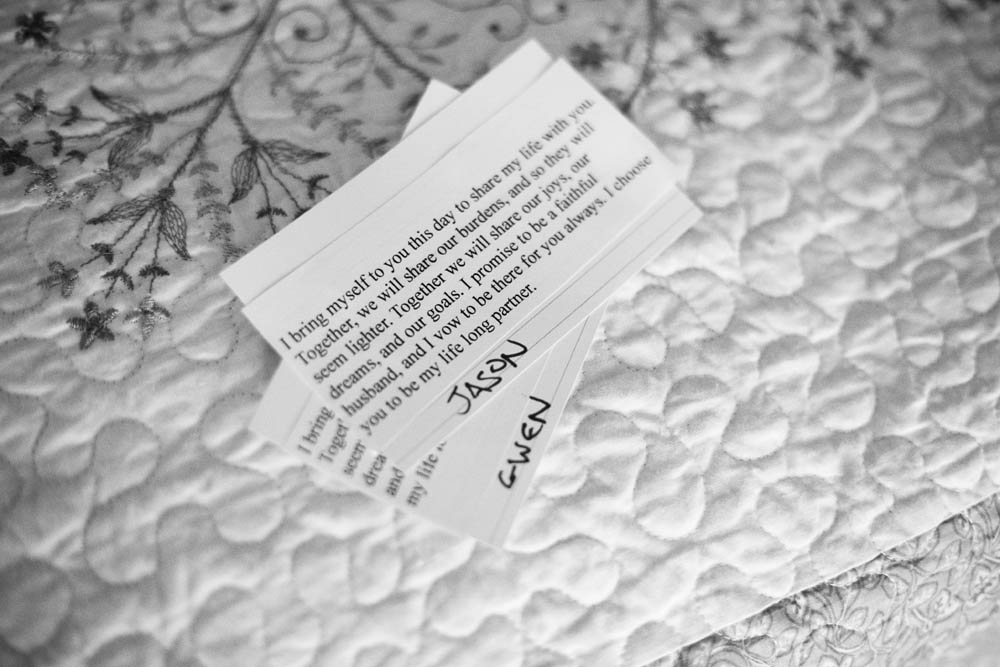 I bring myself to you this day to share my life with you.
Together, we will share our burdens, and so they will
seem lighter. Together we will share our joys, our
dreams, and our goals. I promise to be a faithful
husband, and I vow to be there for you always. I choose
you to be my life long partner.
JASON
I bring
Toget
seem
drea
and
my life
GWEN